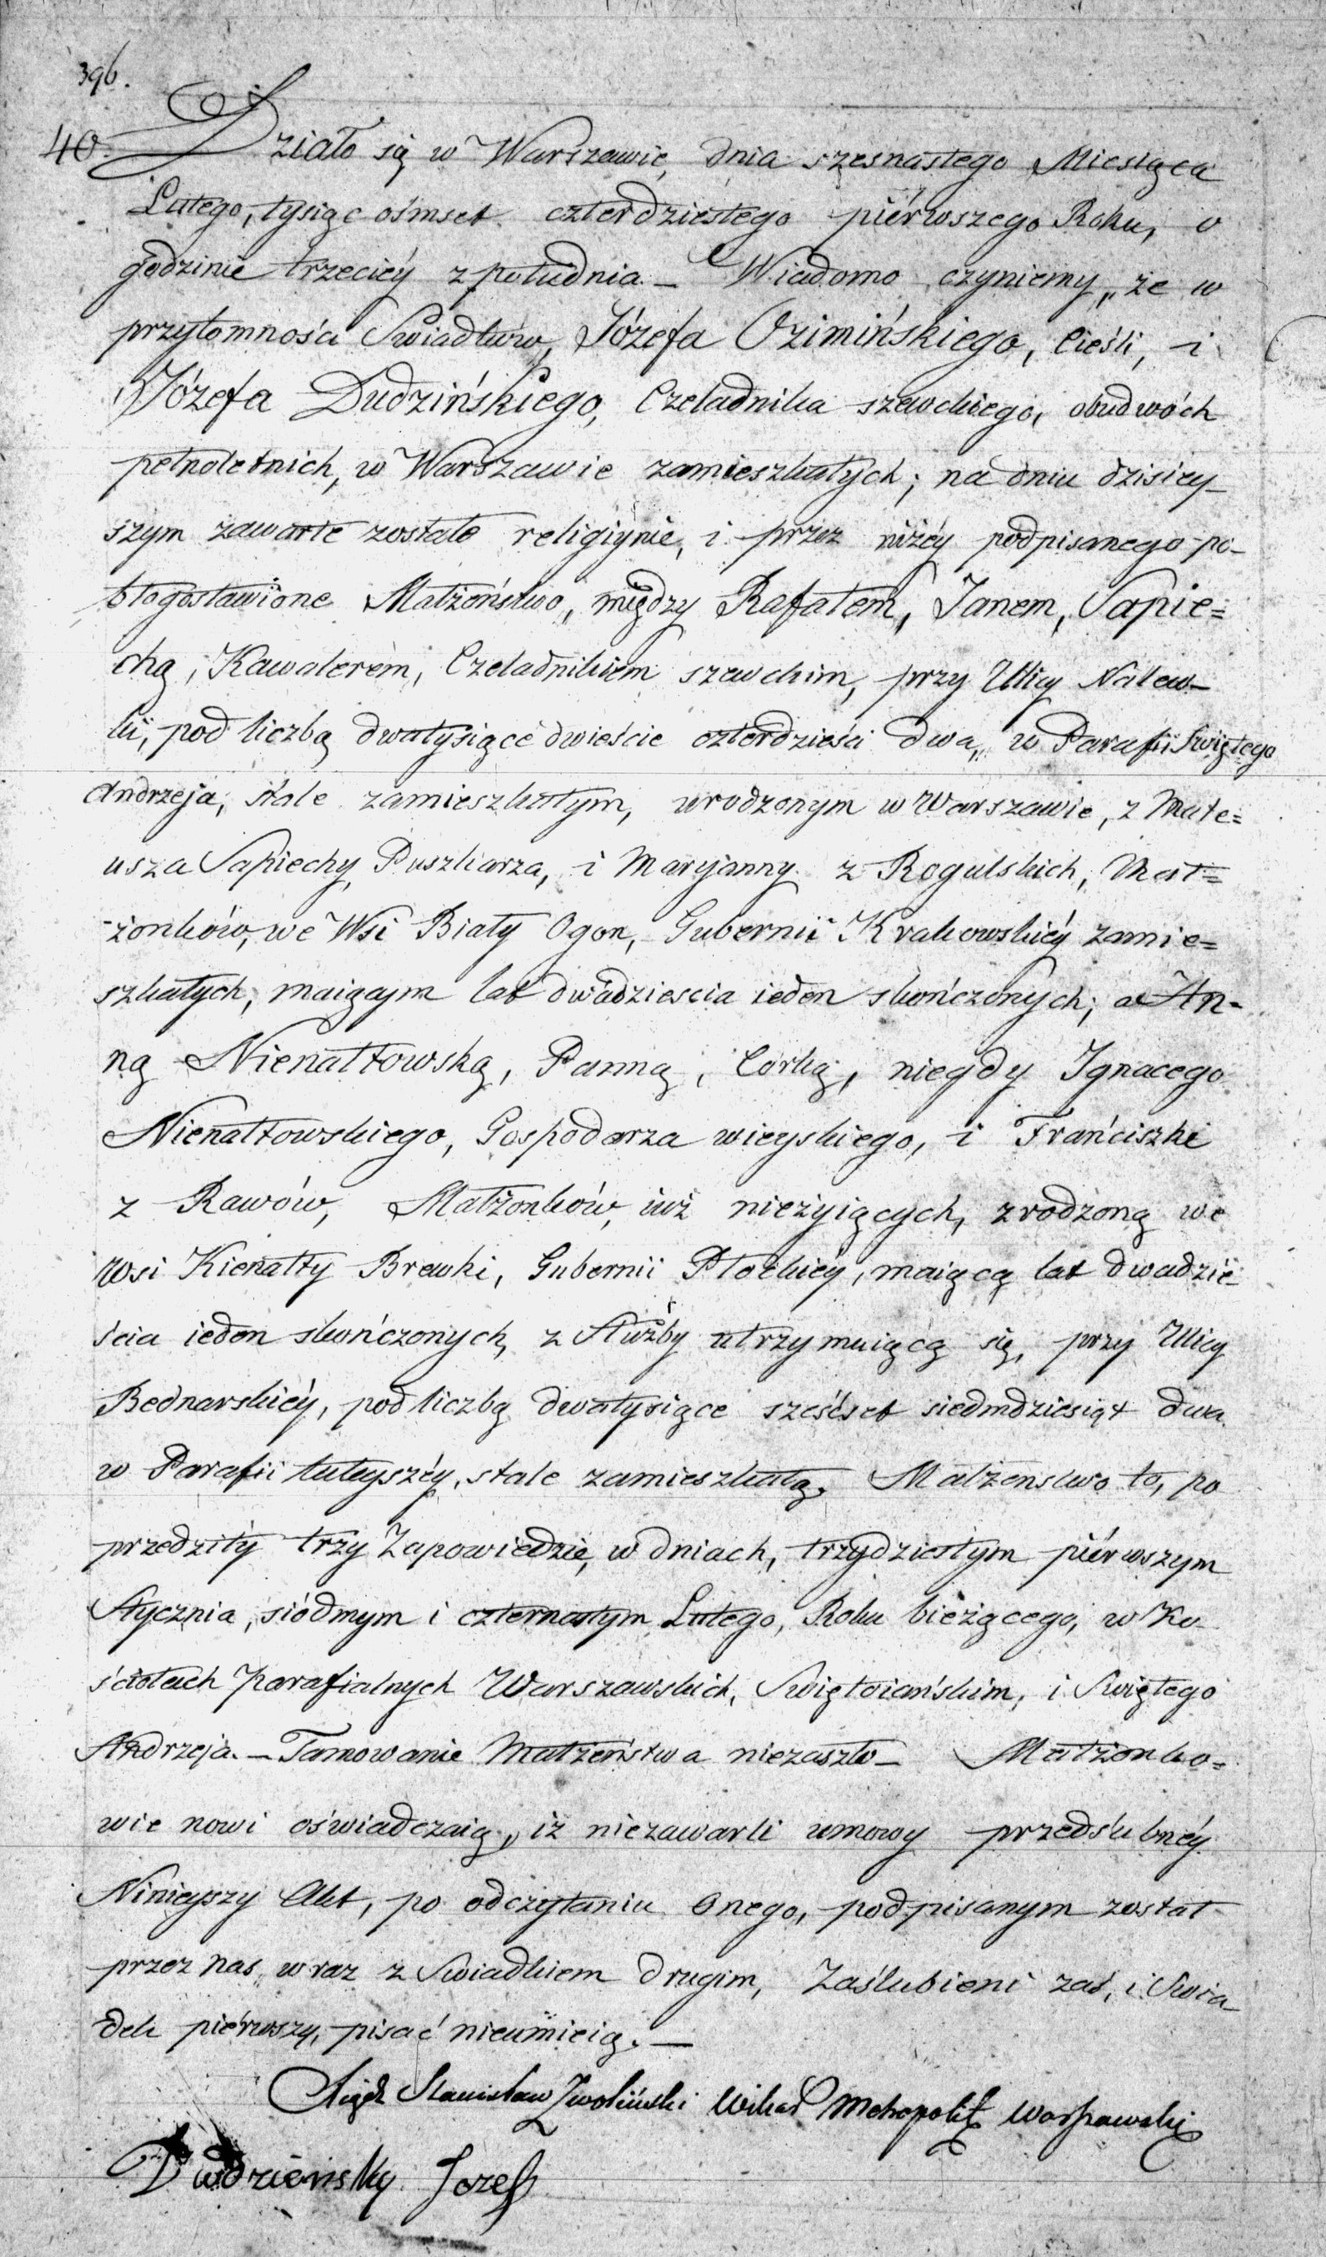 396.
40. Działo się w Warszawie, dnia szesnastego Miesiąca
Lutego, tysiąc ośmset czterdziestego piérwszego Roku, o
godzinie trzeciéy z południa. — Wiadomo czyniemy, że w
przytomności Swiadków, Józefa Ozimińskiego, Cieśli, i
Józefa Dudzińskiego, Czeladnika szewckiego, obudwóch
pełnoletnich, w Warszawie zamieszkałych; na dniu dzisiey-
szym zawarte zostało religiynie, i przez niżéy podpisanego po-
błogosławione Małżeństwo, między Rafałem, Janem, Sapie=
chą, Kawalerem, Czeladnikiem szewckim, przy Ulicy Nalew-
ki, pod liczbą dwatysiące dwieście czterdzieści dwa, w Parafii Swiętego
Andrzeja, stale zamieszkałym, urodzonym w Warszawie, z Mate=
usza Sapiechy, Puszkarza, i Maryanny z Rogulskich, Mał=
żonków, we Wsi Biały Ogon, Gubernii Krakowskiéy zamie=
szkałych, maiącym lat dwadzieścia ieden skończonych; a An-
ną Nienałtowską, Panną, Córką, niegdy Ignacego
Nienałtowskiego, Gospodarza wieyskiego, i Franciszki
z Rawów, Małżonków, iuż nieżyiących, zrodzoną we
Wsi Kienałty Brewki, Gubernii Płockiéy, maiącą lat dwadzie
ścia ieden skończonych, z Służby utrzymuiącą się, przy Ulicy
Bednarskiéy, pod liczbą dwatysiące sześćset siedmdziesiąt dwa
w Parafii tuteyszéy, stale zamieszkałą. Małżenstwo to, po
przedziły trzy Zapowiedzie, w dniach, trzydziestym piérwszym
Stycznia, siódmym i czternastym Lutego, Roku bieżącego, w Ko-
ściołach Parafialnych Warszawskich, Swiętoiańskim, i Swiętego
Andrzeja. — Tamowanie Małżeństwa niezaszło — Małżonko=
wie nowi oświadczaią, iż niezawarli umowy przedślubnéy
Ninieyszy Akt, po odczytaniu onego, podpisanym został
przez nas, wraz z Swiadkiem drugim, Zaślubieni zaś, i Swia
dek piérwszy, pisać nieumieią. —
Xiądz Stanisław Zwoliński Wikar Metropolit Warszawski
Dudzieńsky Jozef